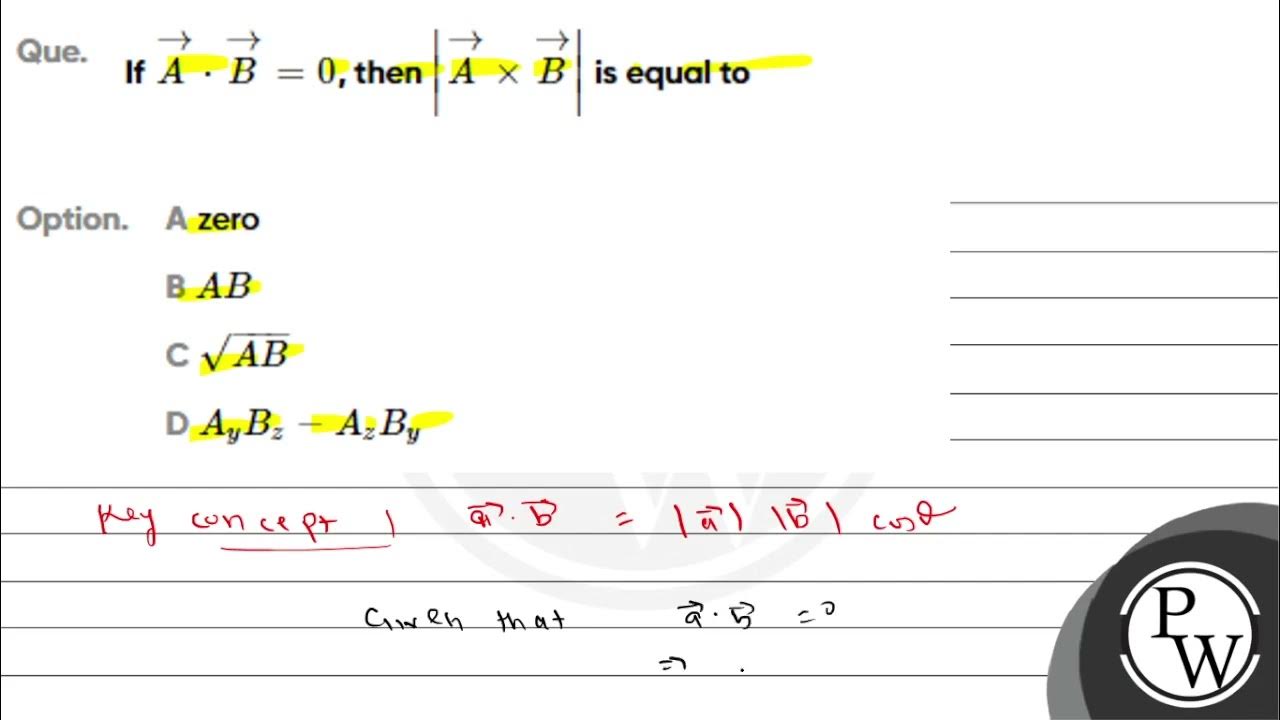 Que. If $\overrightarrow{A} \cdot \overrightarrow{B} = 0$, then $\left|\overrightarrow{A} \times \overrightarrow{B}\right|$ is equal to
Option. A zero
B $AB$
C $\sqrt{AB}$
D $A_yB_z - A_zB_y$
Key concept | $\vec{a} \cdot \vec{b} = |\vec{a}| |\vec{b}| \cos\theta$
Given that $\vec{a} \cdot \vec{b} = 0$
⇒ .
PW